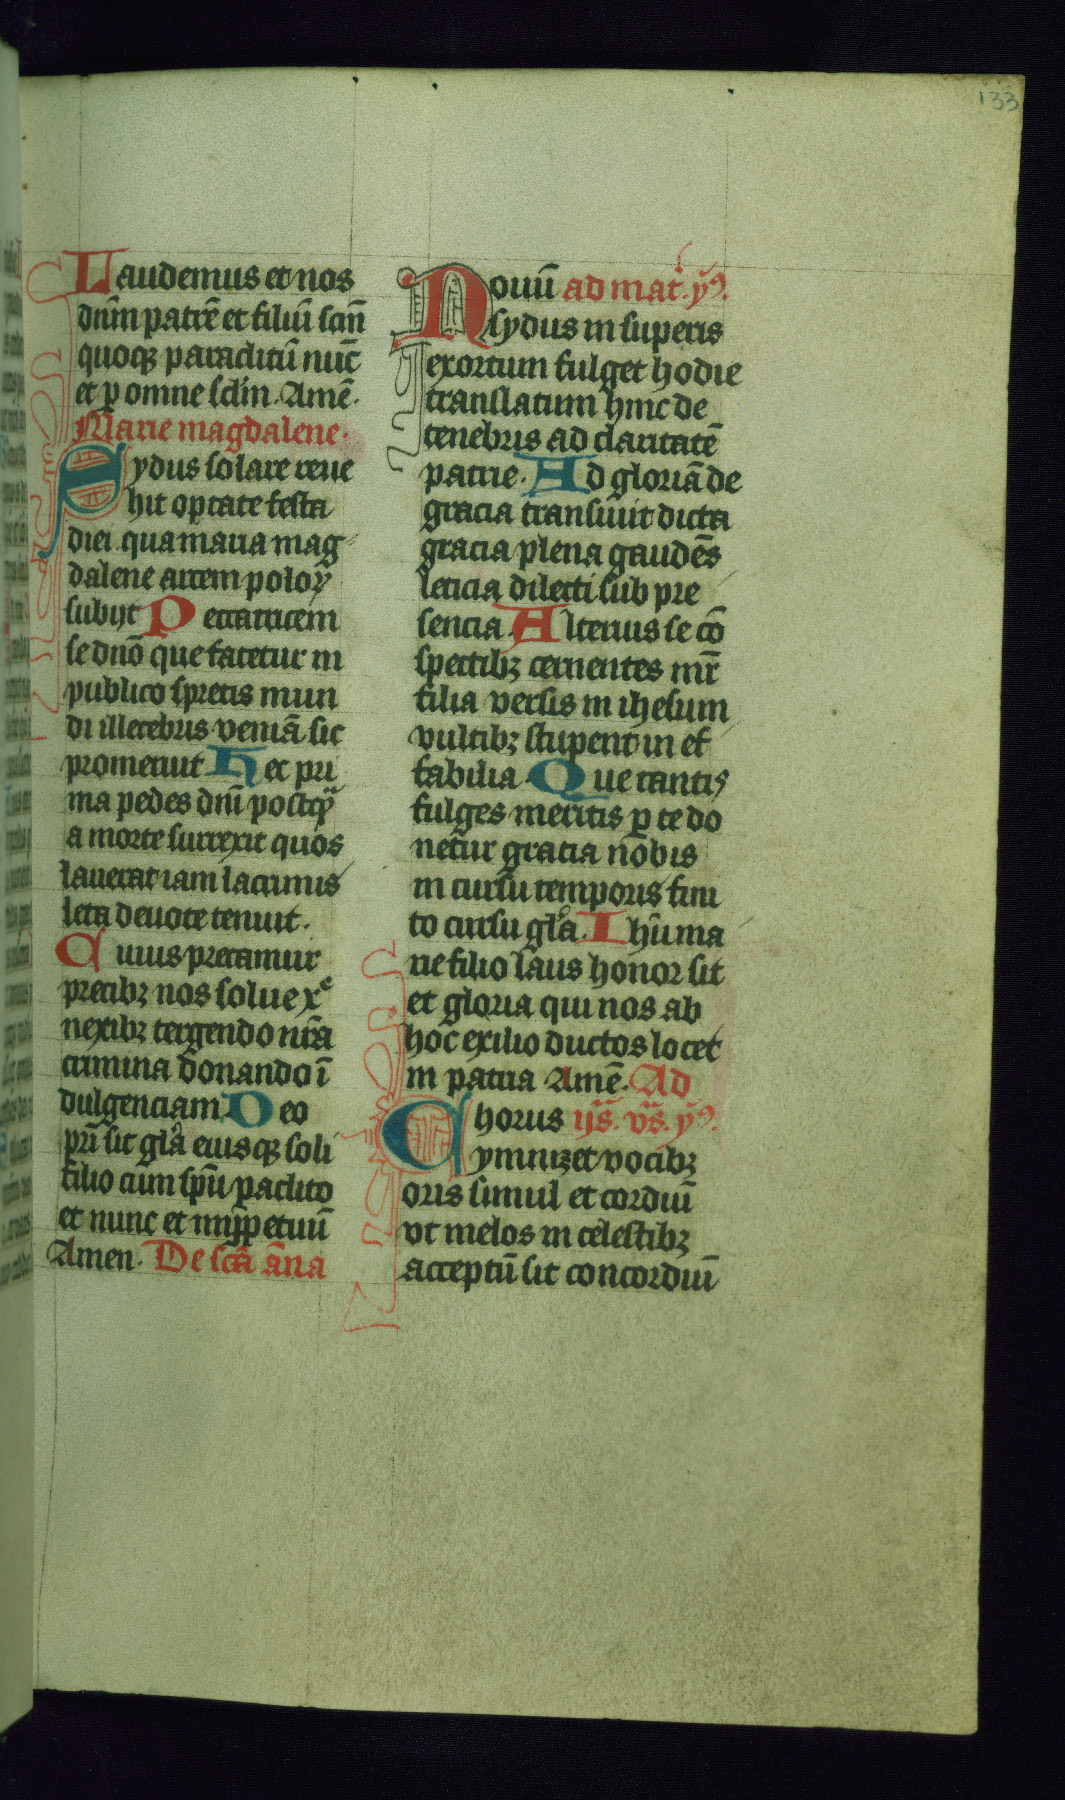 133
Laudemus et nos
dn̄m patrē et filiū scm̄
quoqꝫ paraclitū nūc
et ꝑ omne sclm̄. Amē.
Marie magdalene.
Sydus solare reue
hit optate festa
diei. qua maria mag
dalene arcem poloꝝ
subijt Peccatricem
se dn̄o que fatetur in
publico spretis mun
di illecebris veniā sic
promeruit Hec pri
ma pedes dn̄i postqꝫ
a morte surrexit quos
lauerat iam lacrimis
leta deuote tenuit.
Cuius precamur
precibꝫ nos solue xp̄e
nexibꝫ tergendo nr̄a
crimina donando ī
dulgenciam Deo
pr̄i sit gl̄a eiusqꝫ soli
filio cum spū paclito
et nunc et imꝑpetuū
Amen. De scā āna
Nouū ad mat̄. yꝰ.
sydus in superis
exortum fulget hodie
translatum hinc de
tenebris ad claritatē
patrie. Ad gloriā de
gracia transiuit dicta
gracia plena gaudēs
leticia dilecti sub pre
sencia. Alterius se cō
spectibꝫ cernentes mr̄
filia versis in ihesum
vultibꝫ stupent in ef
fabilia. Que tantis
fulges meritis ꝑ te do
netur gracia nobis
in cursu temporis fini
to cursu gl̄a. Ihū ma
rie filio laus honor sit
et gloria qui nos ab
hoc exilio ductos locet
in patria Amē. Ad
Chorus ijs̄. vs̄. yꝰ.
ymnizet vocibꝫ
oris simul et cordiū
vt melos in celestibꝫ
acceptū sit concordiū